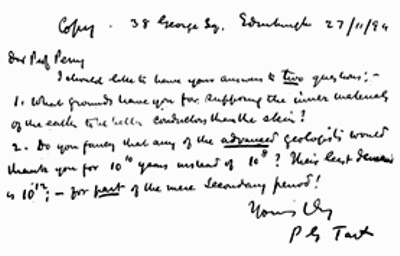 Copy. 38 George Sq. Edinburgh 27/11/94
Dear Prof Perry
I should like to have your answers to two questions:—
1. What grounds have you for supposing the inner materials
of the earth to be better conductors than the skin?
2. Do you fancy that any of the advanced geologists would
thank you for 10¹⁰ years instead of 10⁸? Their least demand
is 10¹²; — for part of the mere Secondary period!
Yours truly
P G Tait